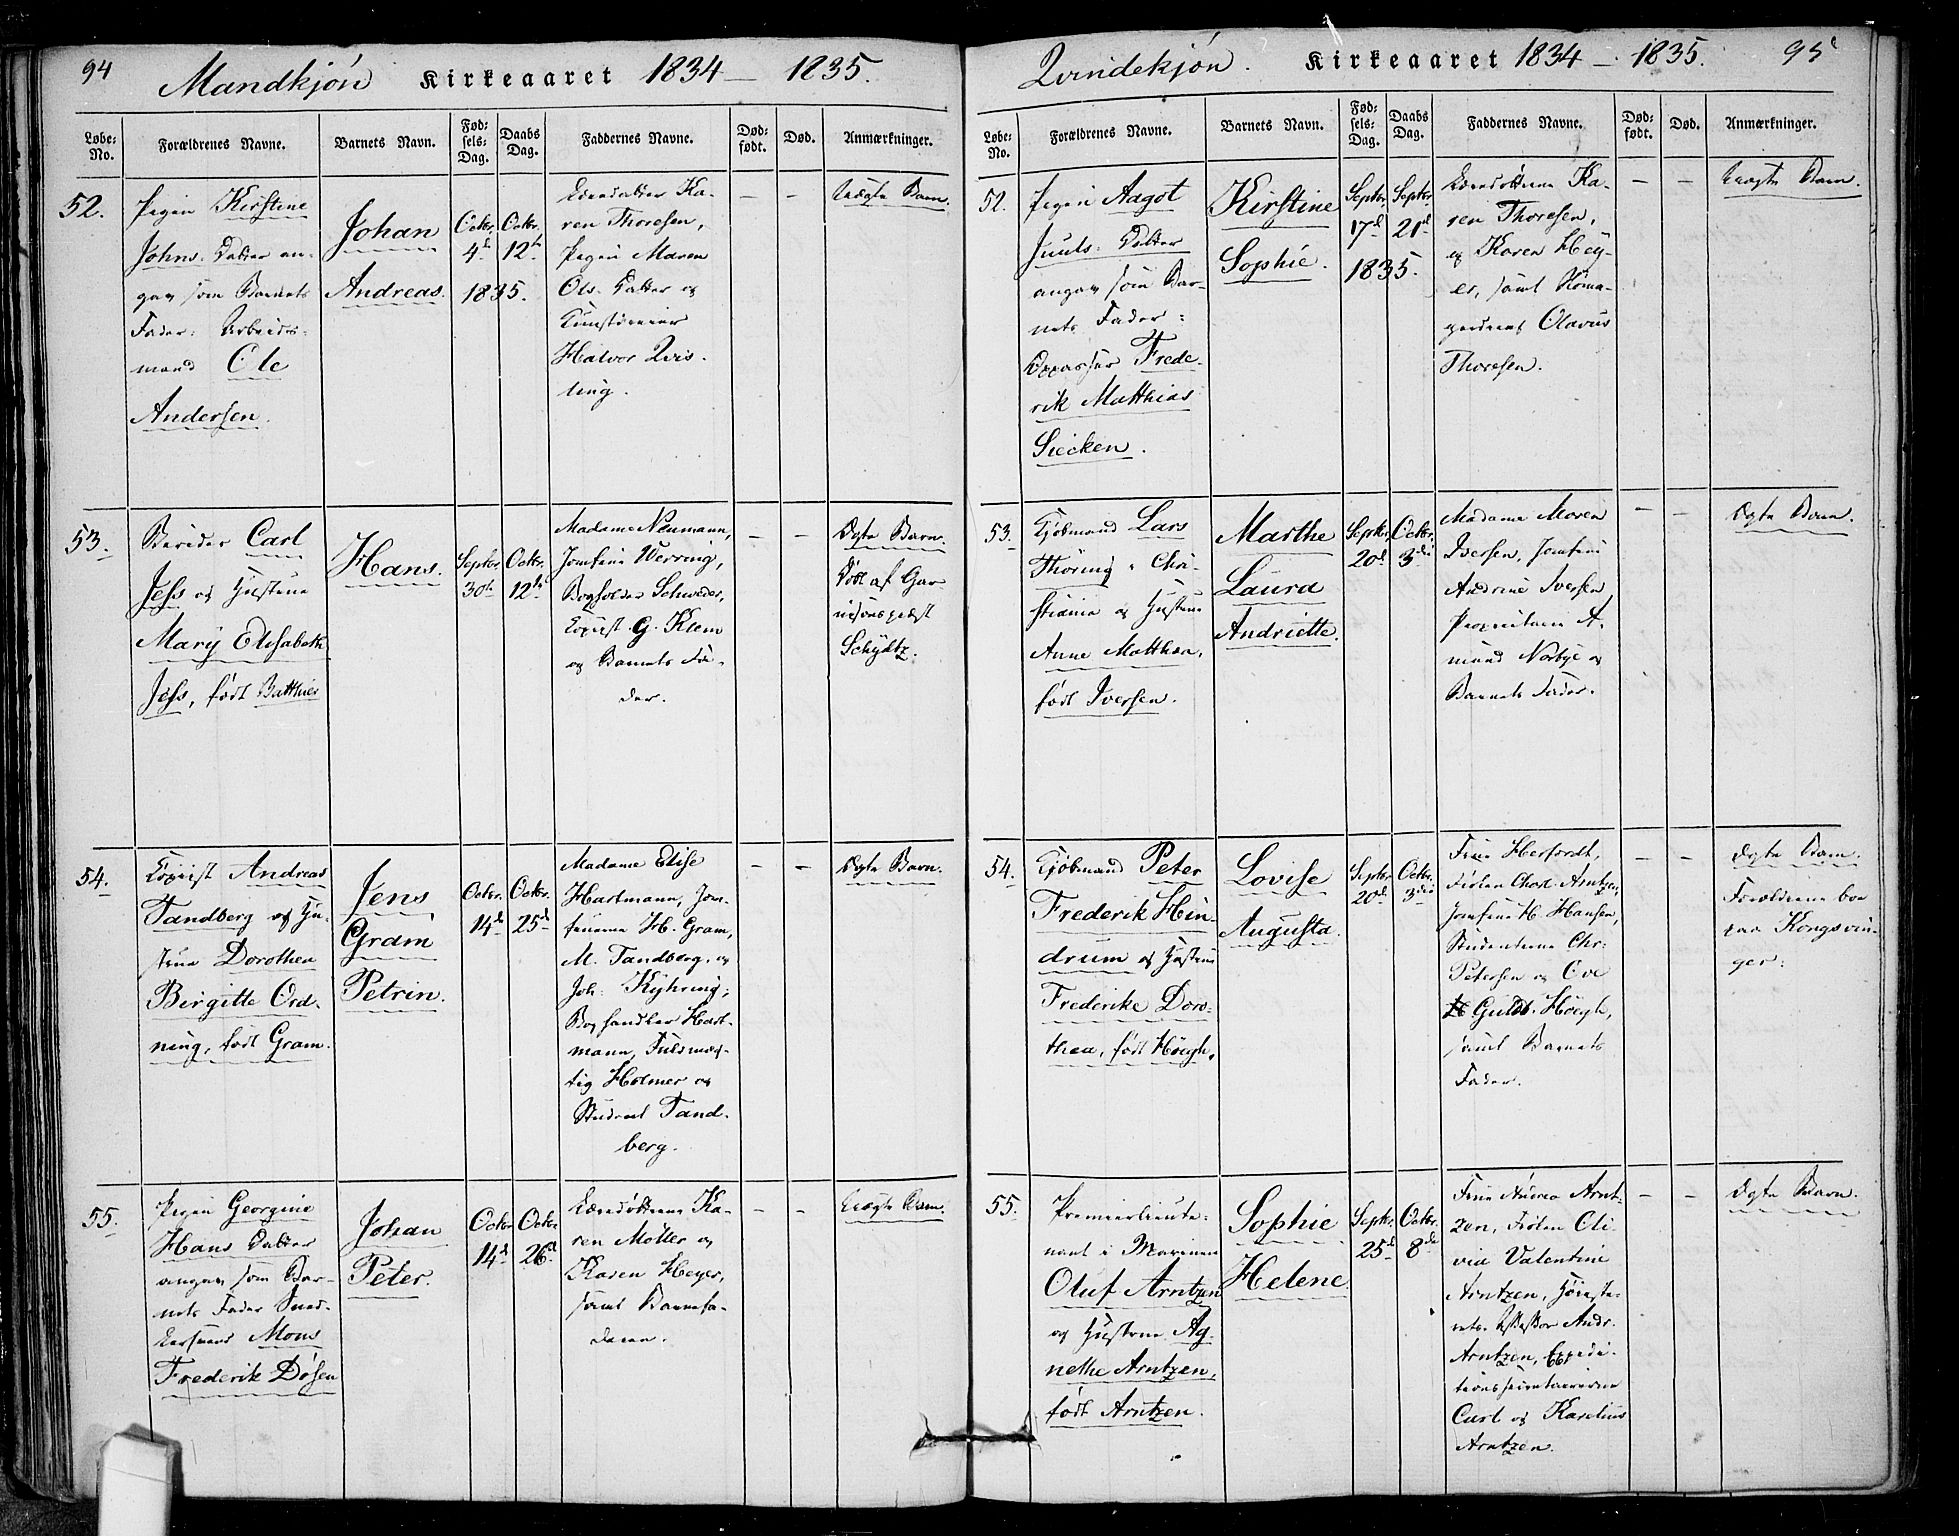 94
Mandkjön Kirkeaaret 1834 — 1835.
Løbe-No. Forældrenes Navne. Barnets Navn. Fødsels-Dag. Daabs Dag. Faddernes Navne. Dødfødt. Død. Anmærkninger.
52.
Pigen Kirstine
Johns Datter an-
gav som Barnets
Fader: Arbeids-
mand Ole
Andersen.
Johan
Andreas.
Octbr. 4d
Octbr. 12te
1835.
Karen Thoresen,
Pigen Maren
Ols. Datter og
Halvor Qvis-
ling.
— —
Uægte Barn.
53.
Bereder Carl
Jess og Hustrue
Mary Elisabeth
Jess, født Batthier
Hans.
Septbr. 30te
Octbr. 12te
Madame Neumann,
Jomfrue Werring,
Bogholder Schweder,
Copiist G. Klem
og Barnets Fa-
der.
— —
Ægte Barn.
Døbt af Gar-
nisonspræst
Schydtz.
54.
Copiist Andreas
Tandberg og Hu-
strue Dorothea
Birgitte Ord-
ning, født Gram.
Jens
Gram
Petrin.
Octbr. 14d
Octbr. 25d
Madame Elise
Hartmann, Jom-
fruerne H. Gram,
M. Tandberg, og
Joh: Kyhring,
Boghandler Hart-
mann, Fuldmæg-
tig Holmer og
Student Tand-
berg.
— —
Ægte Barn.
55.
Pigen Georgine
Hans Datter
angav som Bar-
nets Fader Sned-
kersvend Mons
Frederik Dösen
Johan
Peter.
Octbr. 14d
Octbr. 26d
Læredöttrene Ka-
ren Möller og
Karen Heyer,
samt Barnefa-
deren.
— —
Uægte Barn.
Qvindekjön. Kirkeaaret 1834 — 1835. 95
Løbe-No. Forældrenes Navne. Barnets Navn. Fødsels-Dag. Daabs Dag. Faddernes Navne. Dødfødt. Død. Anmærkninger.
52.
Pigen Aagot
Juuls Datter
angav som Bar-
nets Fader:
Opvarter Frede-
rik Matthias
Siecken.
Kirstine
Sophie.
Septbr. 17d
Septbr. 21d
1835.
Læredöttrene Ka-
ren Thoresen,
og Karen Hey-
er, samt
Olavus
Thoresen.
— —
Uægte Barn.
53.
Kjöbmand Lars
Thöring i Chri-
stiania og Hustrue
Anne Matthea,
født Iversen.
Marthe
Laura
Andriette.
Septbr. 20d
Octbr. 3die
Madame Maren
Iversen, Jomfrue
Andrine Iversen
Proprietair A-
mund Norbye og
Barnets Fader.
— —
Ægte Barn.
54.
Kjöbmand Peter
Frederik Hin-
drum og Hustrue
Frederike Doro-
thea, født Höegh.
Lovise
Augusta.
Septbr. 20d
Octbr. 3die
Frue Herfordt,
Fröken Charl. Arntzen,
Jomfrue H. Hansen,
Studenterne Chr:
Petersen og Ove
Guldb. Höegh,
samt Barnets
Fader.
— —
Ægte Barn.
Forældrene boe
paa Kongsvin-
ger.
55.
Premierlieute-
nant i Marinen
Oluf Arntzen
og Hustrue Ag-
nethe Arntzen,
født Arntzen.
Sophie
Helene.
Septbr. 25d
Octbr. 8de
Frue Andrea Arnt-
zen, Fröken Oli-
via Valentine
Arntzen, Höieste-
rets Assessor Andr.
Arntzen, Expedi-
tionssecretairerne
Carl og Karelius
Arntzen.
— —
Ægte Barn.